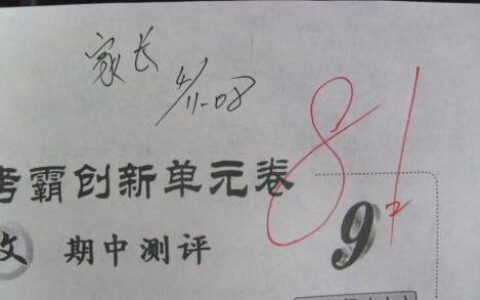 家长
4/11-08
81
考霸创新单元卷
期中测评
9